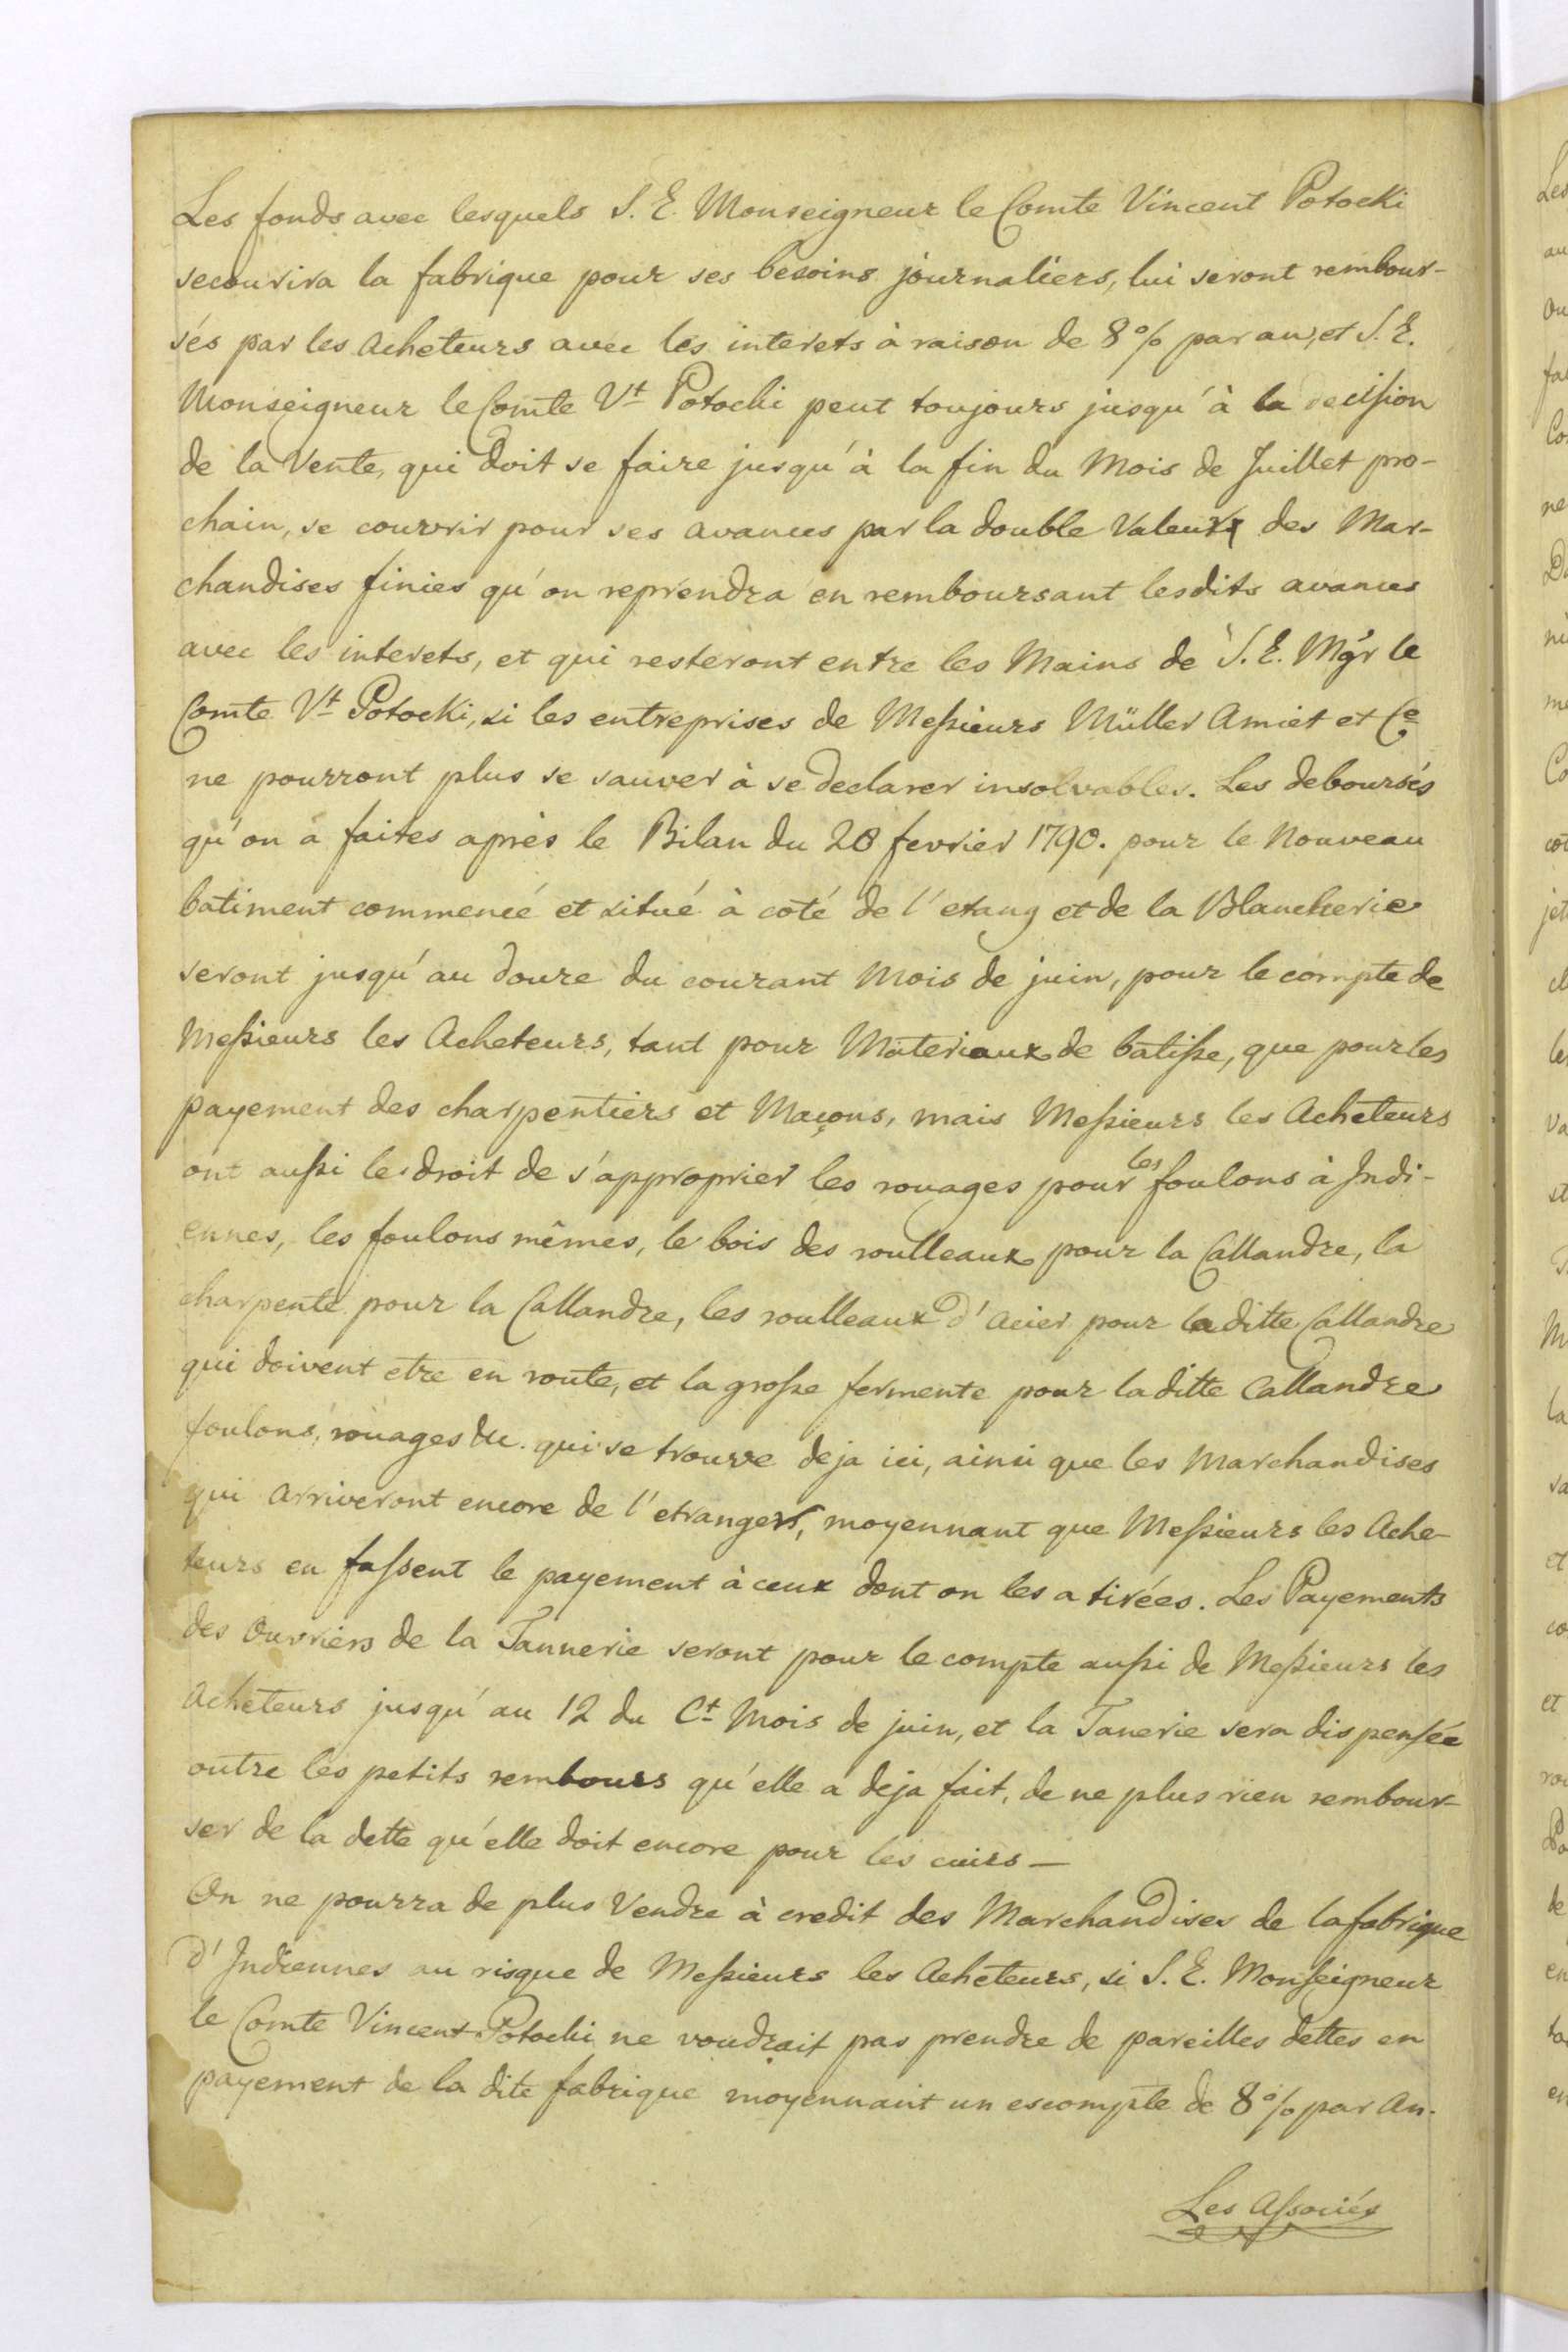 Les fonds avec lesquels S. E. Monseigneur le Comte Vincent Potocki
secourira la fabrique pour ses besoins journaliers, lui seront rembour-
sés par les Acheteurs avec les interets à raison de 8% par an, et S. E.
Monseigneur le Comte Vt Potocki peut toujours jusqu'à la decission
de la Vente, qui doit se faire jusqu'à la fin du Mois de Juillet pro-
chain, se couvrir pour ses avances par la double Valeur des Mar-
chandises finies qu'on reprendra en remboursant lesdits avances
avec les interets, et qui resteront entre les Mains de S. E. Mgr le
Comte Vt Potocki, si les entreprises de Messieurs Müller Amiet et Ce
ne pourront plus se sauver à se declarer insolvables. Les deboursés
qu'on a faites après le Bilan du 28 fevrier 1790. pour le Nouveau
batiment commencé et situé à coté de l'etang et de la Blancherie
seront jusqu'au douze du courant Mois de juin, pour le compte de
Messieurs les Acheteurs, tant pour Materiaux de batisse, que pour les
payement des charpentiers et Maçons, mais Messieurs les Acheteurs
ont aussi le droit de s'approprier les rouages pour les foulons à Indi-
ennes, les foulons mêmes, le bois des roulleaux pour la Callandre, la
charpente pour la Callandre, les roulleaux d'Acier pour laditte Callandre
qui doivent etre en route, et la grosse fermente pour laditte Callandre
foulons, rouages &c. qui se trouve deja ici, ainsi que les Marchandises
qui arriveront encore de l'etranger, moyennant que Messieurs les Ache-
teurs en fassent le payement à ceux dont on les a tirées. Les Payements
des Ouvriers de la Tannerie seront pour le compte aussi de Messieurs les
Acheteurs jusqu'au 12 du Ct Mois de juin, et la Tanerie sera dispensée
outre les petits rembours qu'elle a deja fait, de ne plus rien rembour-
ser de la dette qu'elle doit encore pour les cuirs —
On ne pourra de plus Vendre à credit des Marchandises de la fabrique
d'Indiennes au risque de Messieurs les Acheteurs, si S. E. Monseigneur
le Comte Vincent Potocki ne voudrait pas prendre de pareilles dettes en
payement de la dite fabrique moyennant un escompte de 8% par An.
Les Associés